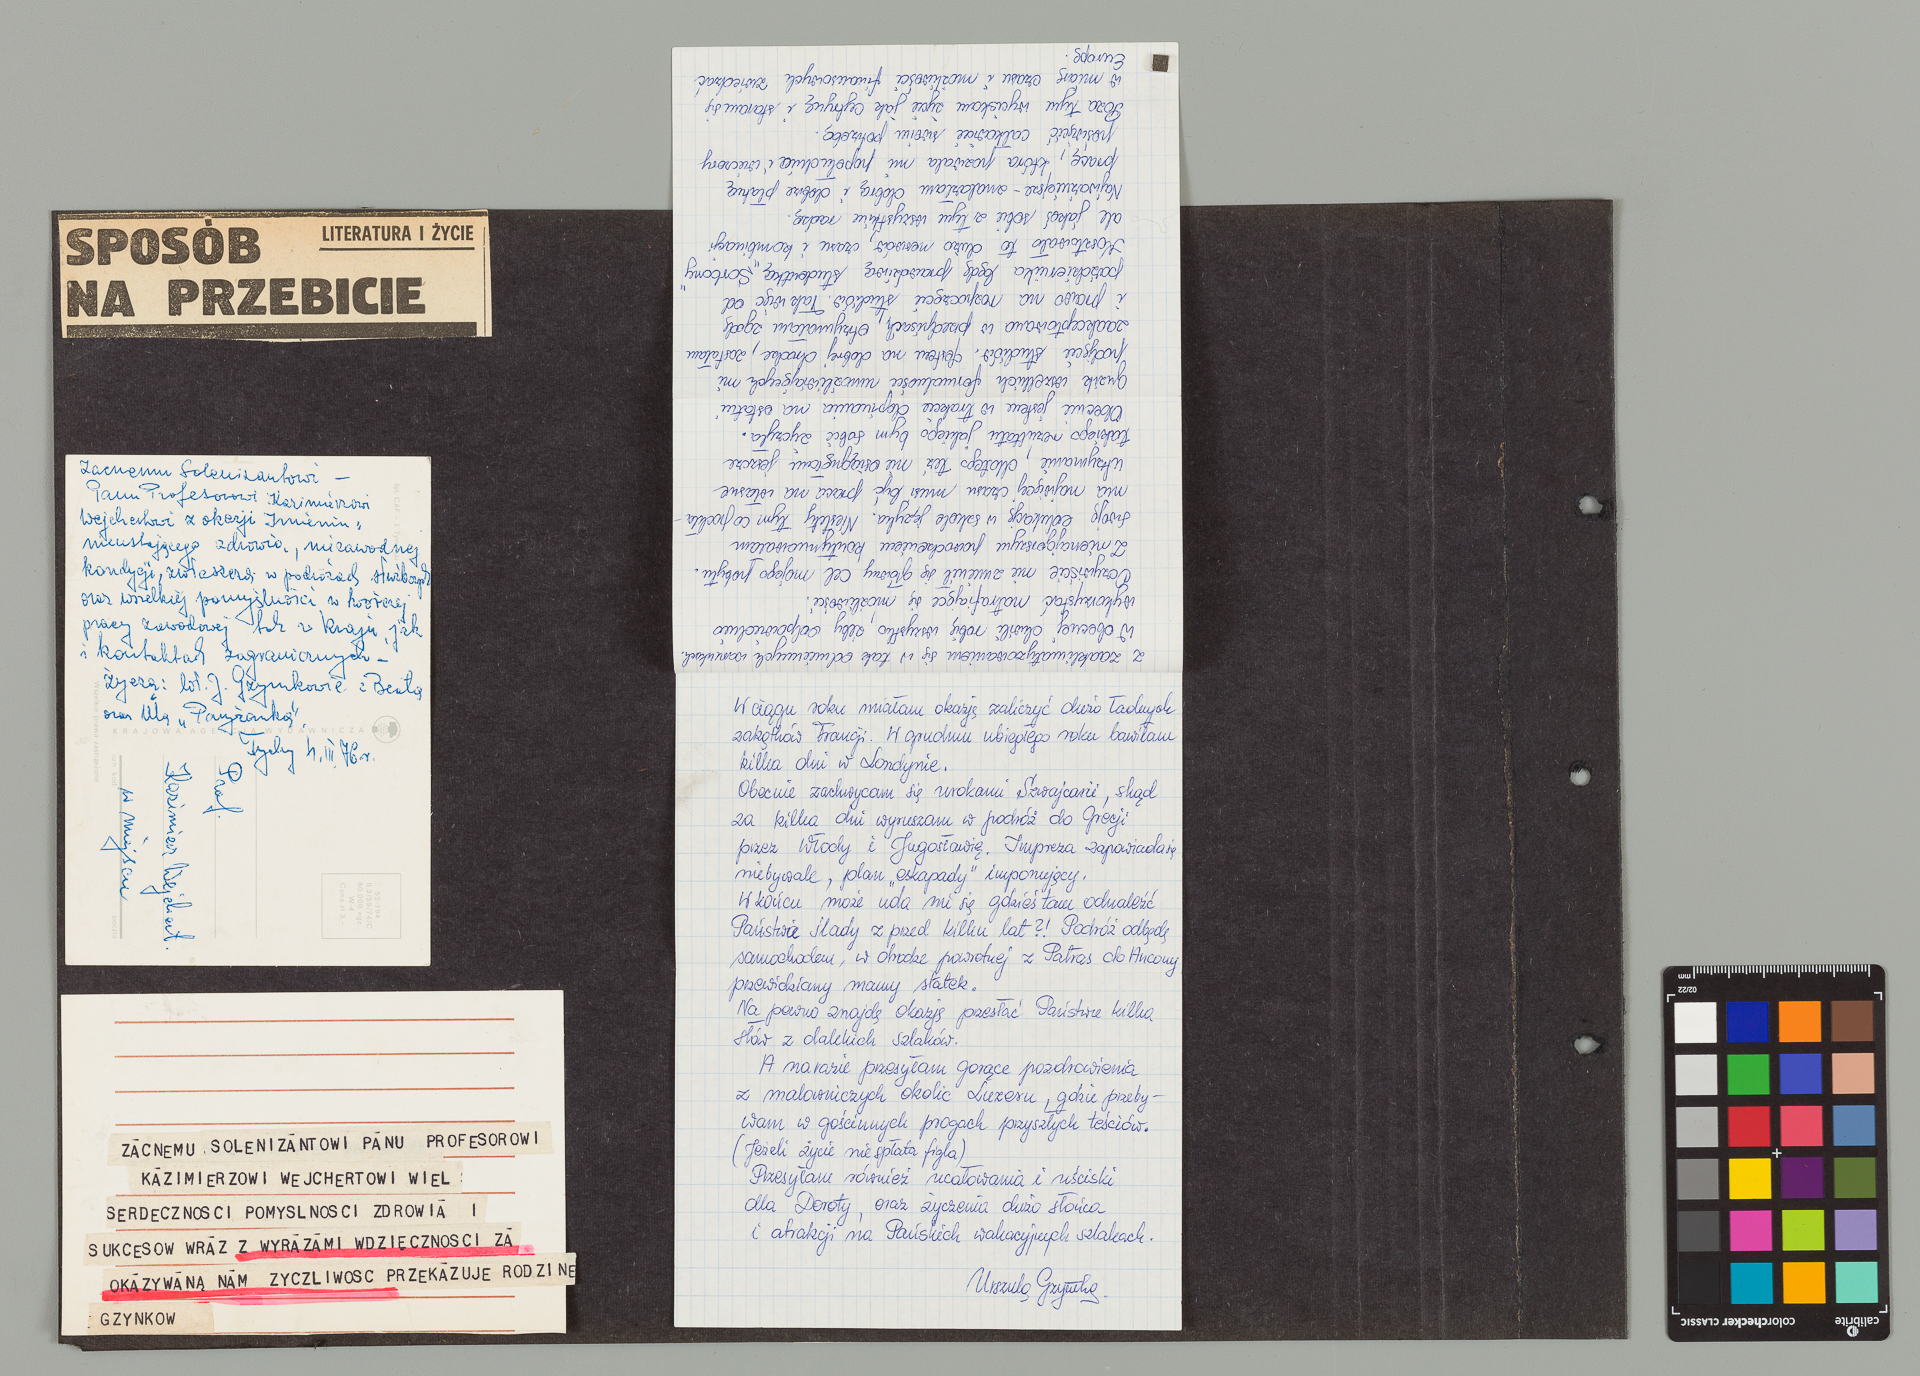 SPOSÓB
NA PRZEBICIE
LITERATURA I ŻYCIE
Zacnemu Solenizantowi –
Panu Profesorowi Kazimierzowi
Wejchertowi z okazji Imienin,
nieustającego zdrowia, niezawodnej
kondycji, zwłaszcza w podróżach służbowych
oraz wszelkiej pomyślności w twórczej
pracy zawodowej tak w kraju, jak
i kontaktach zagranicznych –
życzą: W. J. Gzynkowie i Beata
oraz Ula „Paryżanka”.
Tychy 4.III.76 r.
KRAJOWA AGENCJA WYDAWNICZA
Prof.
Kazimierz Wejchert.
w miejscu
ZACNEMU SOLENIZANTOWI PANU PROFESOROWI
KAZIMIERZOWI WEJCHERTOWI WIEL
SERDECZNOSCI POMYSLNOSCI ZDROWIA I
SUKCESOW WRAZ Z WYRAZAMI WDZIĘCZNOSCI ZA
OKAZYWANĄ NAM ZYCZLIWOSC PRZEKAZUJE RODZINE
GZYNKOW
z zaaklimatyzowaniem się w tak odmiennych warunkach.
W obecnej chwili robię wszystko, żeby odpowiednio
wykorzystać natrafiające się możliwości.
Oczywiście nie zmienił się główny cel mojego pobytu.
Z mienajgorszym powodzeniem kontynuowałam
swoją edukację w szkole języka. Niestety tym co pochła-
nia najwięcej czasu musi być praca na własne
utrzymanie, dlatego też nie osiągnęłam jeszcze
takiego rezultatu jakiego bym sobie życzyła.
Obecnie jestem w trakcie dopinania na ostatni
guzik wszelkich formalności umożliwiających mi
podjęcie studiów. Jestem na dobrej drodze, zostałam
zaakceptowana w przedpisach, otrzymałam zgodę
i prawo na rozpoczęcie studiów. Tak więc od
października będę prawdziwą studentką „Sorbony”
Kosztowało to dużo nerwów, czasu i kombinacji
ale jakoś sobie z tym wszystkim radzę.
Najważniejsze – znalazłam dobrą i dobrze płatną
pracę, która pozwala mi popołudnia i wieczory
poświęcić całkowicie swoim potrzebom.
Poza tym wyciskam życie jak cytrynę i staram się
w miarę czasu i możliwości finansowych zwiedzać
Europę.
W ciągu roku miałam okazję zaliczyć dużo ładnych
zakątków Francji. W grudniu ubiegłego roku bawiłam
kilka dni w Londynie.
Obecnie zachwycam się urokami Szwajcarii, skąd
za kilka dni wyruszam w podróż do Grecji
przez Włochy i Jugosławię. Impreza zapowiada się
niebywale, plan „eskapady” imponujący.
W końcu może uda mi się gdzieś tam odnaleźć
Państwa ślady z przed kilku lat?! Podróż odbędę
samochodem, w drodze powrotnej z Patras do Ancony
przewidziany mamy statek.
Na pewno znajdę okazję przesłać Państwu kilka
słów z dalekich szlaków.
A na razie przesyłam gorące pozdrowienia
z malowniczych okolic Luzernu, gdzie przeby-
wam w gościnnych progach przyszłych teściów.
(Jeżeli życie nie spłata figla)
Przesyłam również ucałowania i uściski
dla Doroty, oraz życzenia dużo słońca
i atrakcji na Pańskich wakacyjnych szlakach.
Urszula Gzynka.
mm
02/22
colorchecker CLASSIC
calibrite